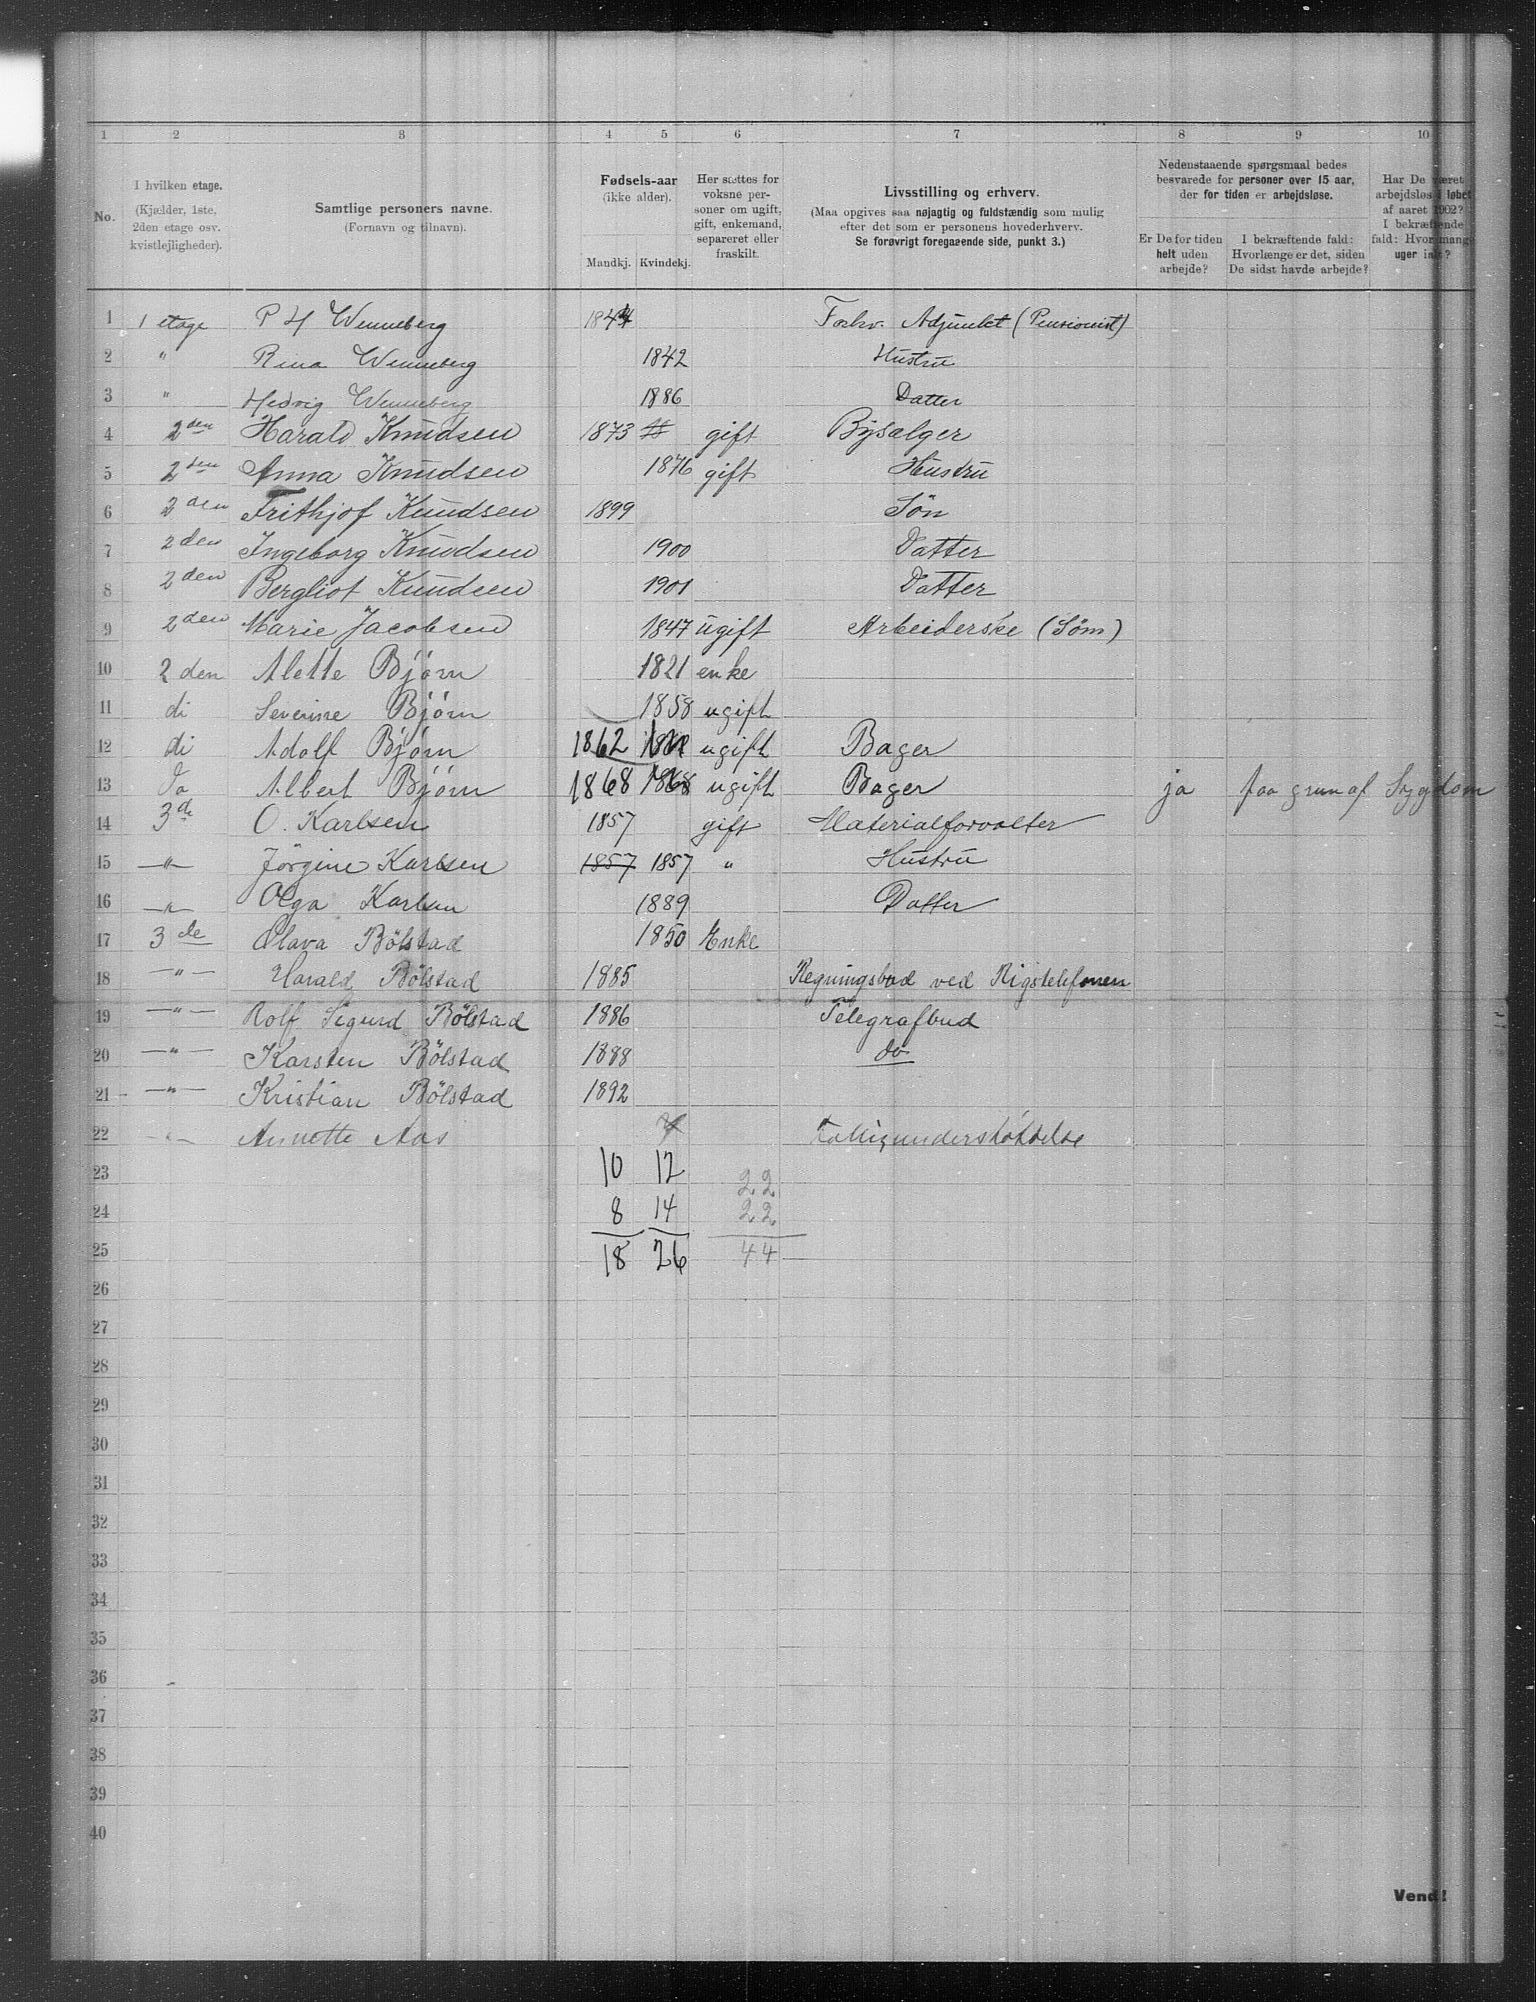 1 2 3 4 5 6 7 8 9 10
No.
I hvilken etage.
(Kjælder, 1ste,
2den etage osv.
kvistlejligheder).
Samtlige personers navne.
(Fornavn og tilnavn).
Fødsels-aar
(ikke alder).
Mandkj. Kvindekj.
Her sættes for
voksne per-
soner om ugift,
gift, enkemand,
separeret eller
fraskilt.
Livsstilling og erhverv.
(Maa opgives saa nøjagtig og fuldstændig som mulig
efter det som er personens hovederhverv.
Se forøvrigt foregaaende side, punkt 3.)
Nedenstaaende spørgsmaal bedes
besvarede for personer over 15 aar,
der for tiden er arbejdsløse.
Er De for tiden
helt uden
arbejde?
I bekræftende fald:
Hvorlænge er det, siden
De sidst havde arbejde?
Har De været
arbejdsløs i løbet
af aaret 1902?
I bekræftende
fald: Hvor mange
uger ialt?
1 1 etage P H Wenneberg 1844 Forhv. Adjunkt (Pensionist)
2 " Rina Wenneberg 1842 Hustru
3 " Hedvig Wenneberg 1886 Datter
4 2den Harald Knudsen 1873 gift Bysælger
5 2den Anna Knudsen 1876 gift Hustru
6 2den Frithjof Knudsen 1899 Søn
7 2den Ingeborg Knudsen 1900 Datter
8 2den Bergliot Knudsen 1901 Datter
9 2den Marie Jacobsen 1847 ugift Arbeiderske (Søm)
10 2 den Alette Bjørn 1821 enke
11 di Severine Bjørn 1858 ugift
12 di Adolf Bjørn 1862 ugift Bager
13 Do Albert Bjørn 1868 1868 ugift Bager ja paa grun af Sygdom
14 3de O. Karlsen 1857 gift Materialforvalter
15 — " — Jörgine Karlsen 1857 1857 " Hustru
16 — " — Olga Karlsen 1889 Datter
17 3 de Olava Bölstad 1850 Enke
18 — " — Harald Bölstad 1885 Regningsbud ved Rigstelefonen
19 — " — Rolf Sigurd Bölstad 1886 Telegrafbud
20 — " — Karsten Bölstad 1888 do
21 — " — Kristian Bölstad 1892
22 - " - Annette Aas
23 10 12 22
24 8 14 22
25 18 26 44
26
27
28
29
30
31
32
33
34
35
36
37
38
39
40
Vend!